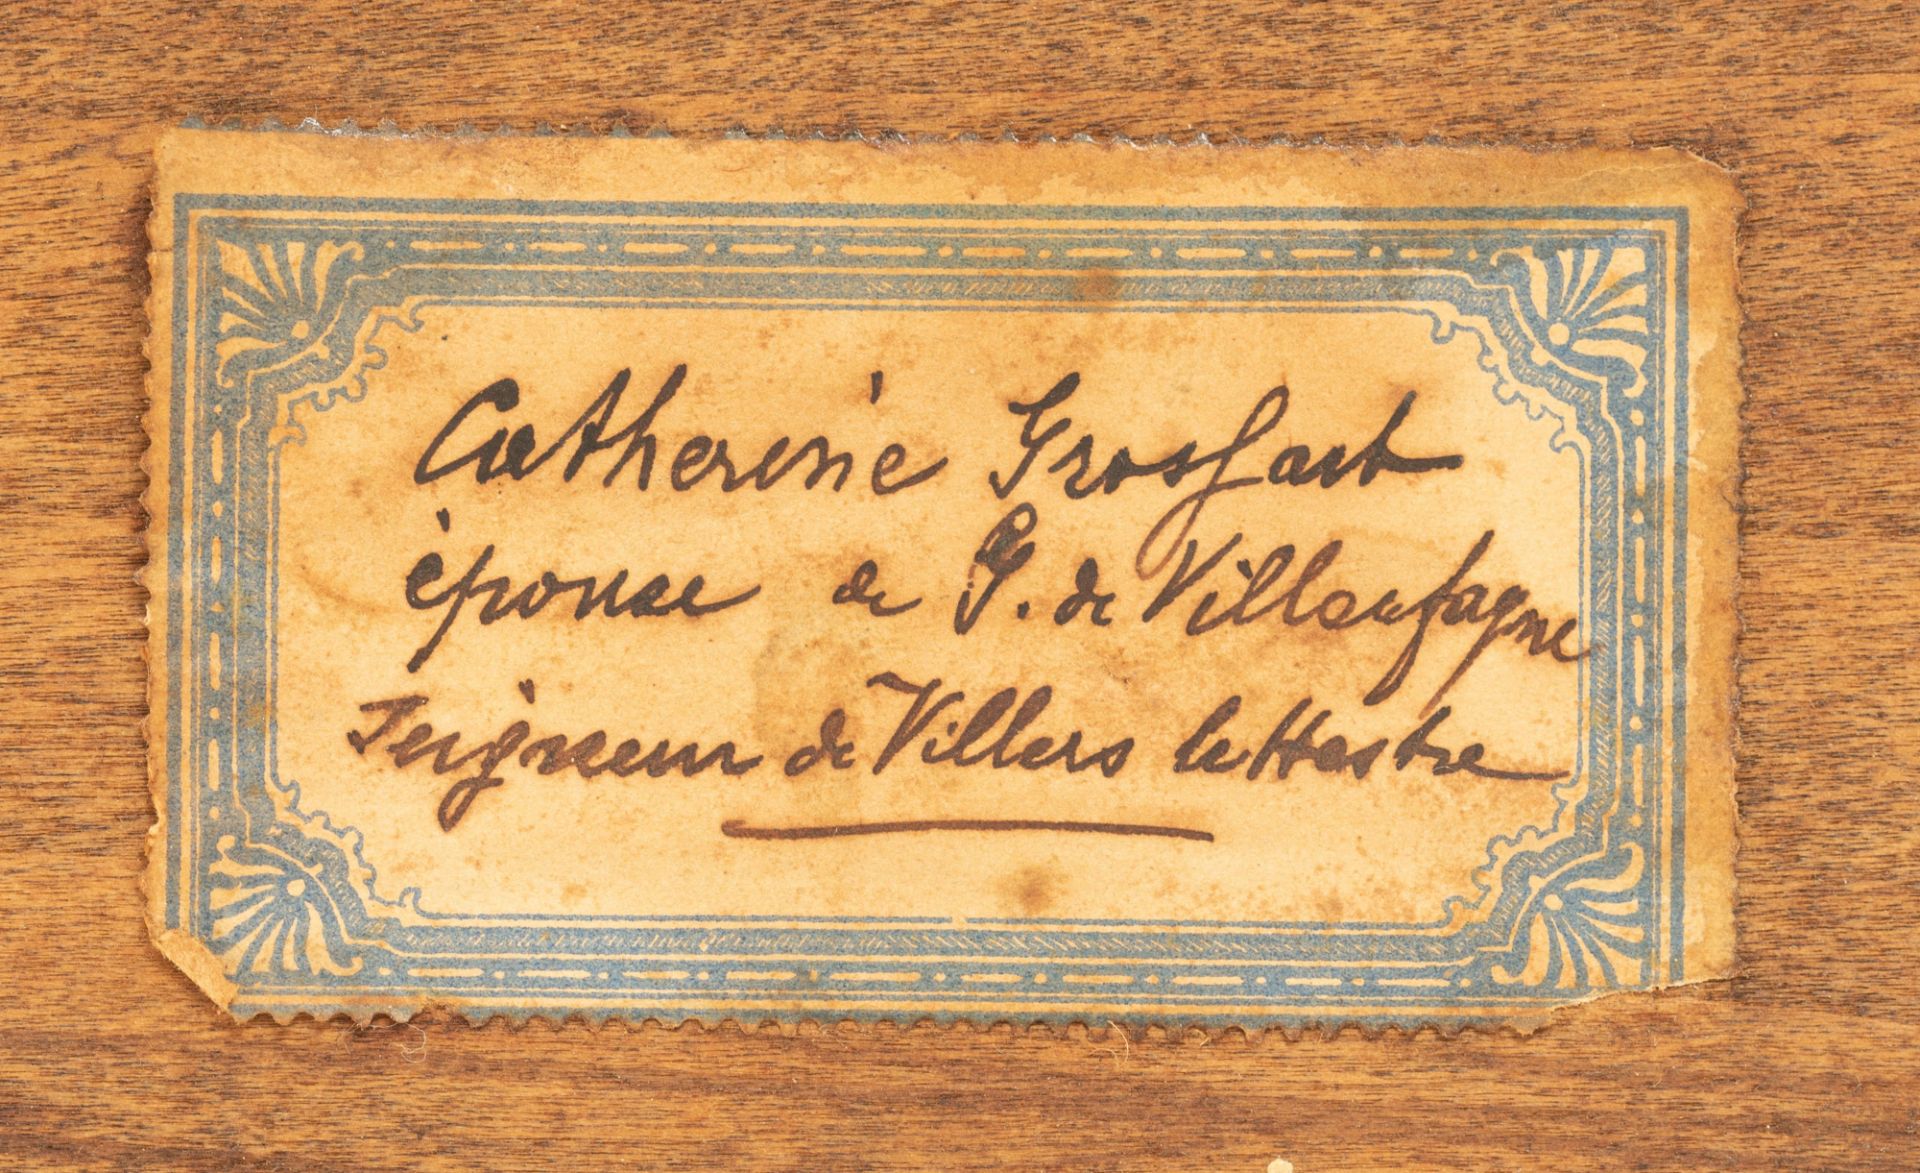 Catherine Grosfart
épouse de G. de Villenfagne
Seigneur de Villers le Hestre